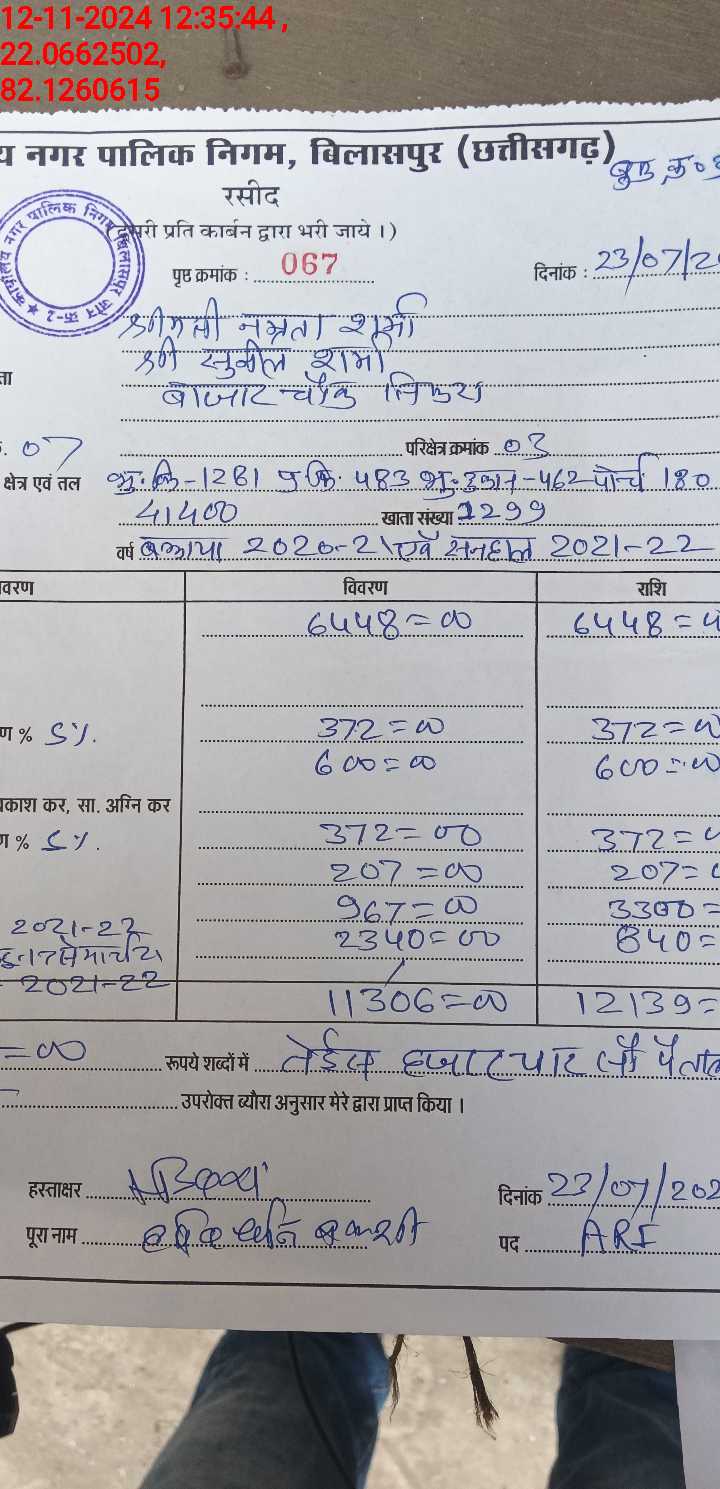 12-11-2024 12:35:44 ,
22.0662502,
82.1260615
य नगर पालिक निगम, बिलासपुर (छत्तीसगढ़)
बुक क्र०
रसीद
कार्यालय नगर पालिक निगम बिलासपुर जोन क्र-2
(दूसरी प्रति कार्बन द्वारा भरी जाये ।)
पृष्ठ क्रमांक : 067
दिनांक : 23/07/2
श्रीमती नम्रता शर्मा
श्री सुनील शर्मा
ता
बाजार चौक
. 07 परिक्षेत्र क्रमांक 03
क्षेत्र एवं तल -1281 483 भू. दुकान-462 पोर्च 180
41400 खाता संख्या 1299
वर्ष बकाया 2020-21 एवं सनहाल 2021-22
वरण विवरण राशि
6448=00 6448=
ण % 5%. 372=00 372=00
600=00 600=00
काश कर, सा. अग्नि कर
ण % 5%. 372=00 372=
207=00 207=
967=00 3300=
2021-22 2340=00 840=
2021-22
11306=00 12139=
=00 रूपये शब्दों में तेईस हजार चार सौ पैताल
उपरोक्त ब्यौरा अनुसार मेरे द्वारा प्राप्त किया ।
हस्ताक्षर दिनांक 23/07/202
पूरा नाम पद ARI